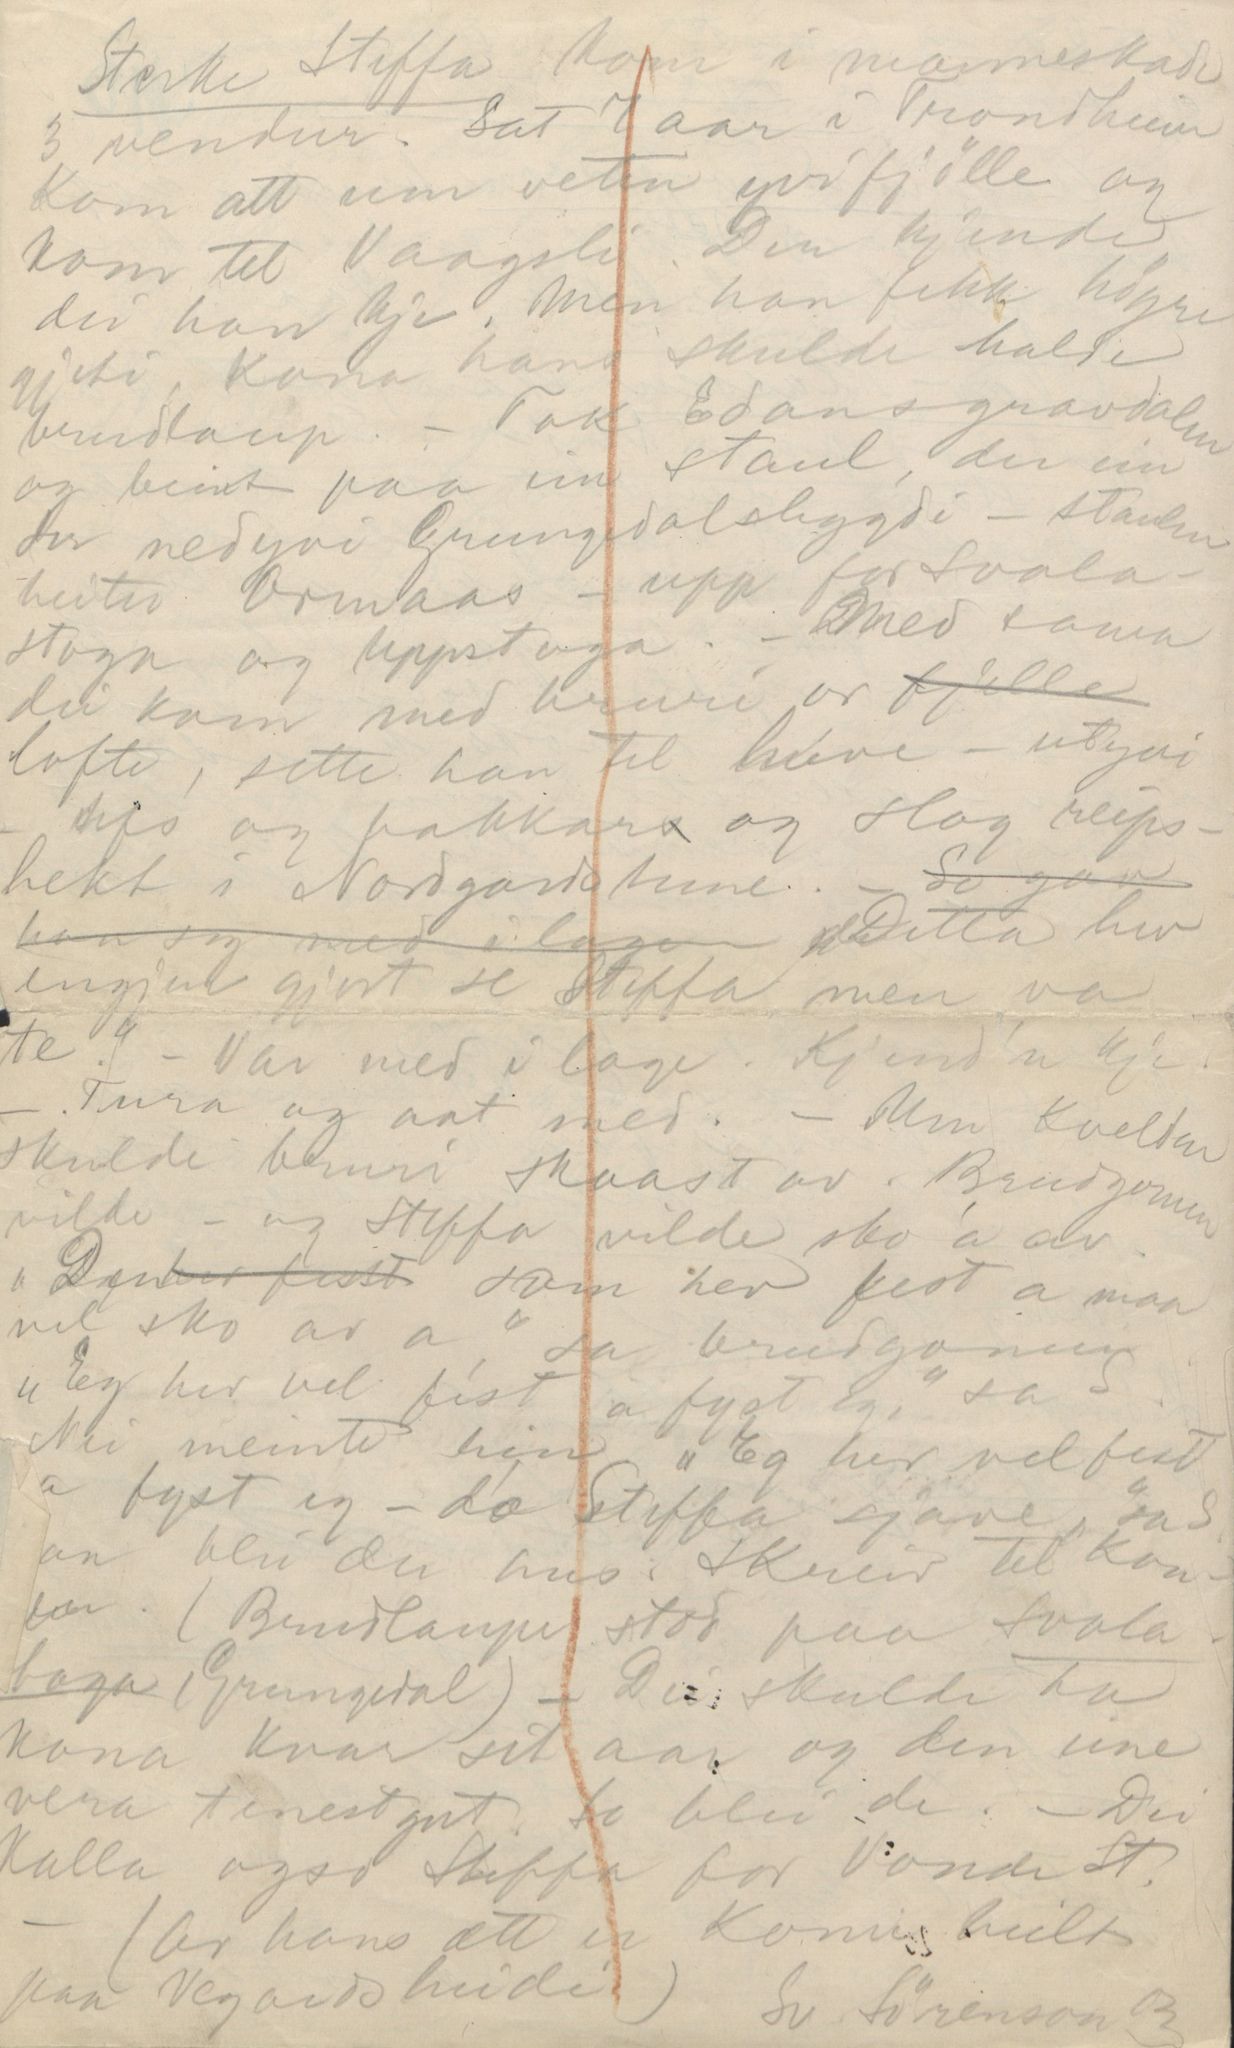 Sterke Steffa kom i manneskade
3 vendur. Sat 7 aar i Trondheim
Kom att um vetin yvi fjölle og
kom til Vaagsli. Der kjende
dei han kje. Men han fekk högre
gjeti, kona hans skulde halde
brudlaup. – Tok Edansgravdalen
og beint paa ein staul, der ein
ser nedyvi Grungedalsbygdi – staulen
heiter Ormaas – upp for Svala-
stoga og Uppstoga. – Med sama
dei kom med bruri or fjelle
lofte, sette han til huve – utyvi
– ufs og bakkar og slog reips-
hekt i Nordgardstune. – So gav
han seg med i lagen Detta hev
engjen gjort se Steffa, men va
te." – Var med i lage. Kjend'n kje.
– Tura og aat med. – Um kvelden
skulde bruri skoast av. Brudgomen
vilde – og Steffa vilde sko a av.
"Den hev fest som hev fest a maa
vel sko av a" sa brudgomen
"Eg hev vel fest a fyst eg," sa S.
Nei meinte hin "Eg hev vel fest
a fyst eg – dæ Steffa sjave," sa S.
an blei der hus. Skreiv til Kon-
(Brudlaupe stod paa Svala-
toga (Grungedal) – Dei skulde ha
kona kvar sit aar og den eine
vera tenestgut. So blei de. – Dei
kalla ogso Steffa for Vonde St.
– (Av hans ætt er Komis heilt
paa Vegardsheidi)
Sv. Sörenson